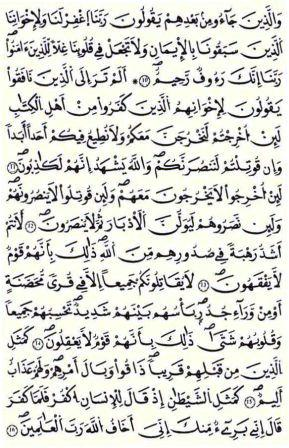 وَالَّذِينَ جَاءُو مِنْ بَعْدِهِمْ يَقُولُونَ رَبَّنَا اغْفِرْ لَنَا وَلِإِخْوَانِنَا
الَّذِينَ سَبَقُونَا بِالْإِيمَانِ وَلَا تَجْعَلْ فِي قُلُوبِنَا غِلًّا لِلَّذِينَ آمَنُوا
رَبَّنَا إِنَّكَ رَءُوفٌ رَحِيمٌ ١٠ * أَلَمْ تَرَ إِلَى الَّذِينَ نَافَقُوا
يَقُولُونَ لِإِخْوَانِهِمُ الَّذِينَ كَفَرُوا مِنْ أَهْلِ الْكِتَابِ
لَئِنْ أُخْرِجْتُمْ لَنَخْرُجَنَّ مَعَكُمْ وَلَا نُطِيعُ فِيكُمْ أَحَدًا أَبَدًا
وَإِنْ قُوتِلْتُمْ لَنَنْصُرَنَّكُمْ وَاللَّهُ يَشْهَدُ إِنَّهُمْ لَكَاذِبُونَ ١١
لَئِنْ أُخْرِجُوا لَا يَخْرُجُونَ مَعَهُمْ وَلَئِنْ قُوتِلُوا لَا يَنْصُرُونَهُمْ
وَلَئِنْ نَصَرُوهُمْ لَيُوَلُّنَّ الْأَدْبَارَ ثُمَّ لَا يُنْصَرُونَ ١٢ لَأَنْتُمْ
أَشَدُّ رَهْبَةً فِي صُدُورِهِمْ مِنَ اللَّهِ ذَلِكَ بِأَنَّهُمْ قَوْمٌ
لَا يَفْقَهُونَ ١٣ لَا يُقَاتِلُونَكُمْ جَمِيعًا إِلَّا فِي قُرًى مُحَصَّنَةٍ
أَوْ مِنْ وَرَاءِ جُدُرٍ بَأْسُهُمْ بَيْنَهُمْ شَدِيدٌ تَحْسَبُهُمْ جَمِيعًا
وَقُلُوبُهُمْ شَتَّى ذَلِكَ بِأَنَّهُمْ قَوْمٌ لَا يَعْقِلُونَ ١٤ كَمَثَلِ
الَّذِينَ مِنْ قَبْلِهِمْ قَرِيبًا ذَاقُوا وَبَالَ أَمْرِهِمْ وَلَهُمْ عَذَابٌ
أَلِيمٌ ١٥ كَمَثَلِ الشَّيْطَانِ إِذْ قَالَ لِلْإِنْسَانِ اكْفُرْ فَلَمَّا كَفَرَ
قَالَ إِنِّي بَرِيءٌ مِنْكَ إِنِّي أَخَافُ اللَّهَ رَبَّ الْعَالَمِينَ ١٦